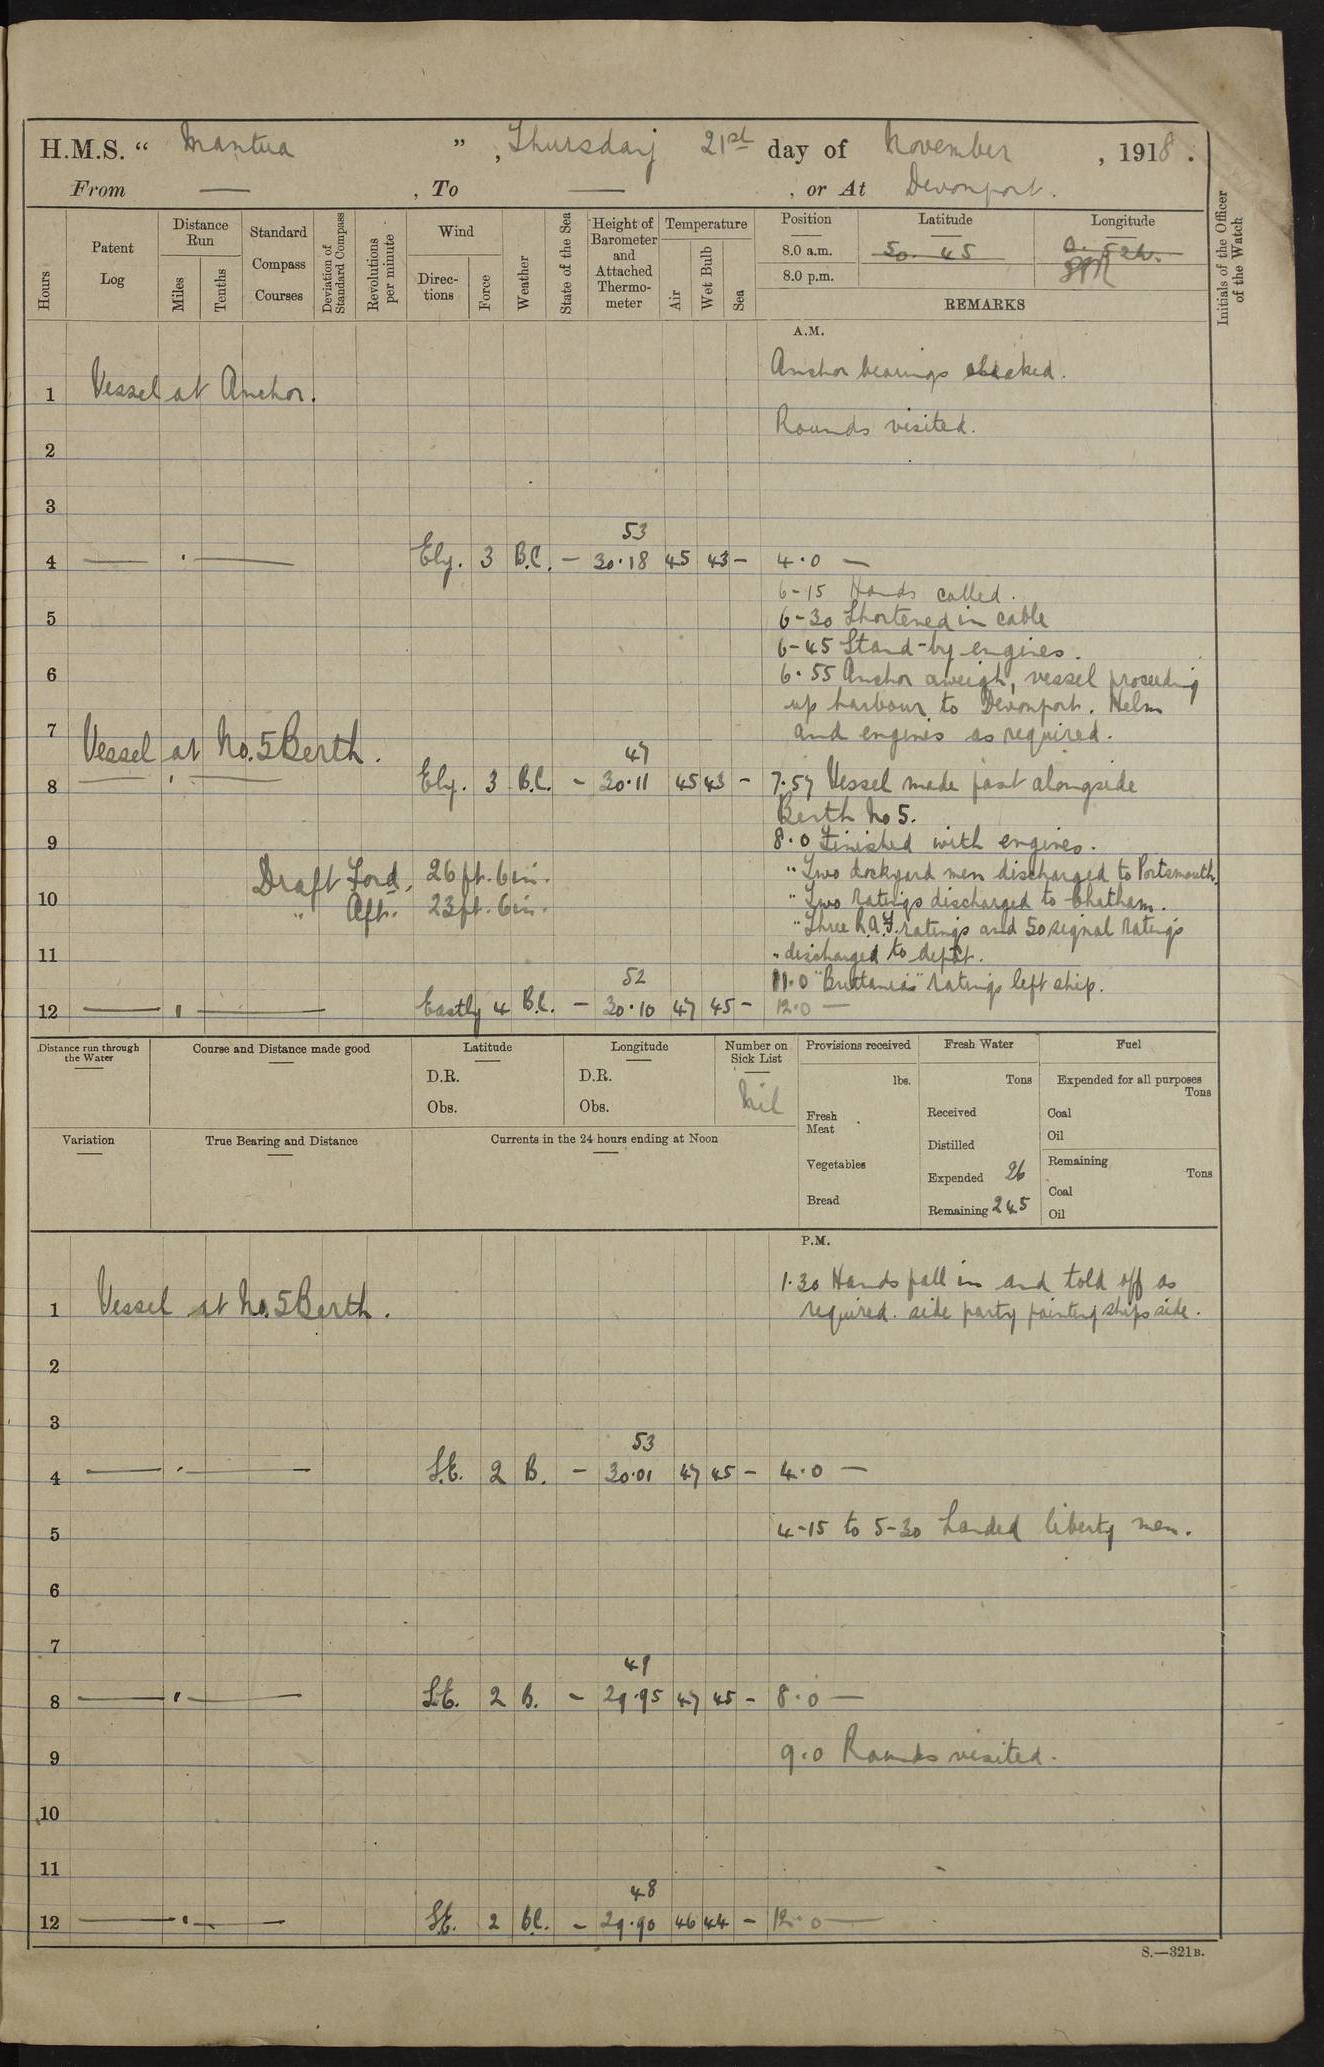 H.M.S. “ Mantua ” , Thursday 21st day of November , 1918 .
From — , To — , or At Devonport.
Hours
Patent Log
Distance Run
Miles
Tenths
Standard Compass Courses
Deviation of Standard Compass
Revolutions per minute
Wind
Directions
Force
Weather
State of the Sea
Height of Barometer and Attached Thermometer
Temperature
Air
Wet Bulb
Sea
Position
Latitude
Longitude
8.0 a.m. 50. 45
8.0 p.m.
REMARKS
Initials of the Officer of the Watch
A.M.
Anchor bearings checked.
1 Vessel at Anchor.
Rounds visited.
2
3
53
4 — . — Ely. 3 B.C. – 30.18 45 43 – 4.0 —
6-15 Hands called.
5 6-30 Shortened in cable
6-45 Stand-by engines.
6 6.55 Anchor aweigh, vessel proceeding
up harbour to Devonport. Helm
7 and engines as required.
Vessel at No. 5 Berth.
47
8 — . — Ely. 3 B.C. – 30.11 45 43 – 7.57 Vessel made fast alongside
Berth No 5.
9 8.0 Finished with engines.
Draft Ford. 26ft. 6in. " Two dockyard men discharged to Portsmouth.
10 " Aft. 23ft. 6in. " Two ratings discharged to Chatham.
" Three R.A.F. ratings and 50 signal ratings
11 " discharged to depot.
52 11.0 "Brittanias" ratings left ship.
12 — . — Eastly 4 B.C. – 30.10 47 45 – 12.0 —
Distance run through the Water
Course and Distance made good
Latitude
D.R.
Obs.
Longitude
D.R.
Obs.
Number on Sick List
Nil
Provisions received
lbs.
Fresh Meat
Vegetables
Bread
Fresh Water
Tons
Received
Distilled
Expended 26
Remaining 245
Fuel
Expended for all purposes
Tons
Coal
Oil
Remaining
Tons
Coal
Oil
Variation
True Bearing and Distance
Currents in the 24 hours ending at Noon
P.M.
1.30 Hands fall in and told off as
1 Vessel at No. 5 Berth. required. side party painting ships side.
2
3
53
4 — . — S.E. 2 B. – 30.01 47 45 – 4.0 —
5 4-15 to 5-30 Landed liberty men.
6
7
49
8 — . — S.E. 2 B. – 29.95 47 45 – 8.0 —
9 9.0 Rounds visited.
10
11
48
12 — . — S.E. 2 B.C. – 29.90 46 44 – 12.0 —
S.—321B.